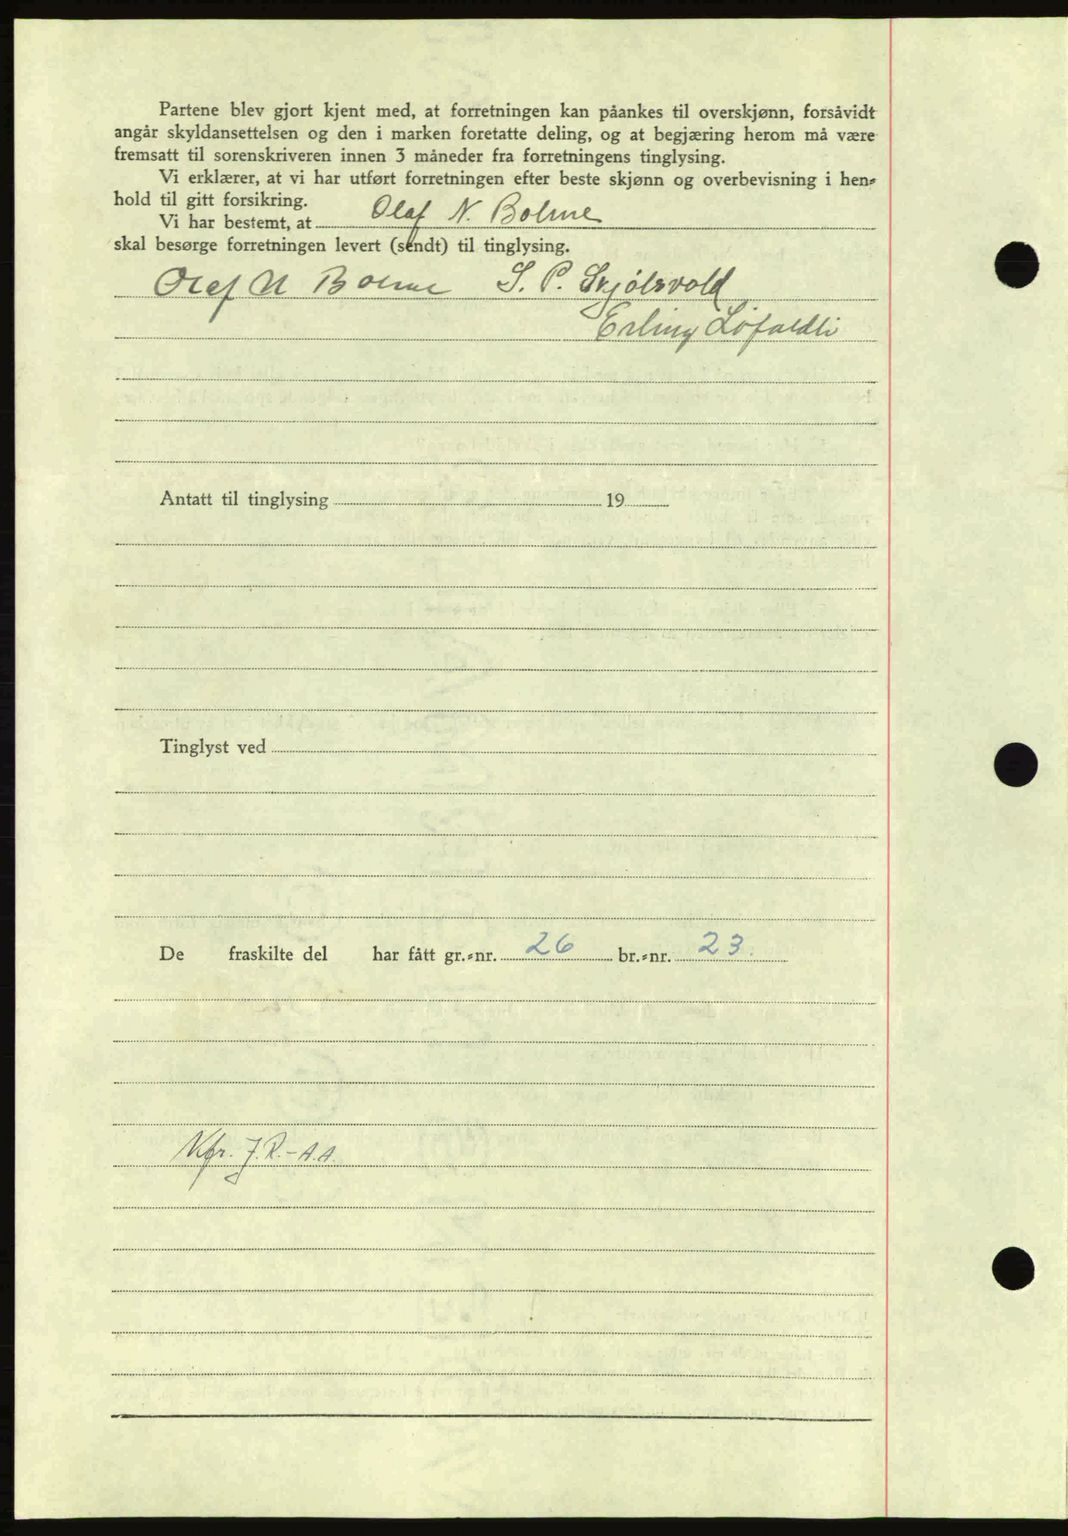 Partene blev gjort kjent med, at forretningen kan påankes til overskjønn, forsåvidt
angår skyldansettelsen og den i marken foretatte deling, og at begjæring herom må være
fremsatt til sorenskriveren innen 3 måneder fra forretningens tinglysing.
Vi erklærer, at vi har utført forretningen efter beste skjønn og overbevisning i hen-
hold til gitt forsikring.
Vi har bestemt, at Olaf N. Bolme
skal besørge forretningen levert (sendt) til tinglysing.
Olaf N Bolme S. P. Skjølsvold
Erling Løfaldli
Antatt til tinglysing 19
Tinglyst ved
De fraskilte del har fått gr.-nr. 26 br.-nr. 23.
Kfr. J.R. - A.A.